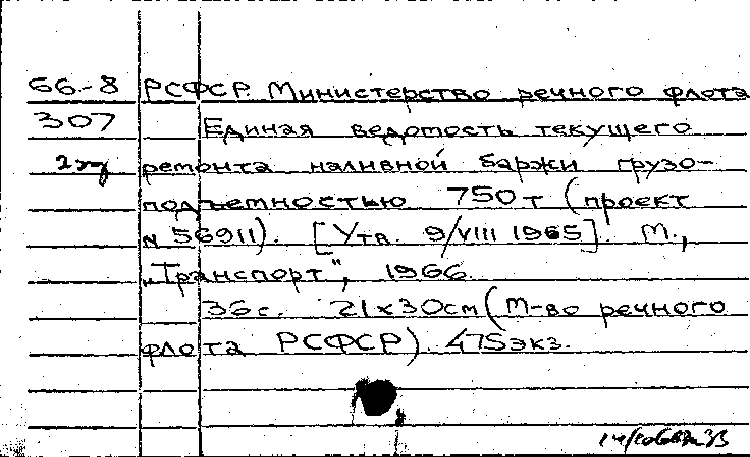 66-8 РСФСР. Министерство речного флота
307 Единая ведомость текущего
ремонта наливной баржи грузо-
подъемностью 750т (проект
№ 56911). [Утв. 9/VIII 1965]. М.,
„Транспорт", 1966.
36с. 21х30см (М-во речного
флота РСФСР). 475экз.